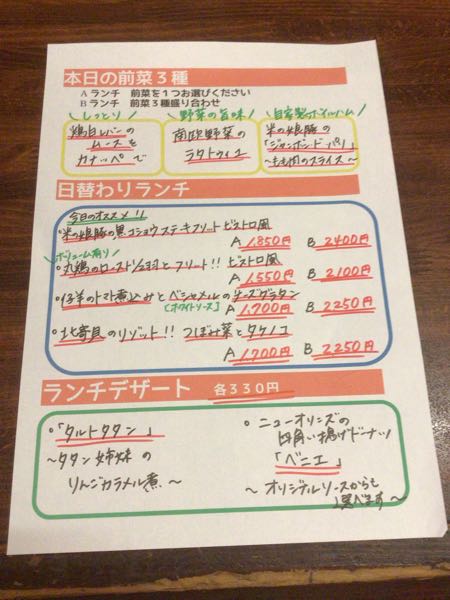 本日の前菜3種
Aランチ 前菜を1つお選びください
Bランチ 前菜3種盛り合わせ
しっとり
鶏白レバーの
ムースを
カナッペで
野菜の旨味
南欧野菜の
ラタトゥイユ
自家製ボイルハム
米の娘豚の
「ジャンボンド・パリ」
~もも肉のスライス~
日替わりランチ
今日のオススメ!!
・米の娘豚の黒コショウステーキフリット ビストロ風
A 1,850円 B 2400円
ボリューム有り
・丸鶏のロースト1/2羽とフリット!! ビストロ風
A 1,550円 B 2100円
・仔羊のトマト煮込みとベシャメルのチーズグラタン
[ホワイトソース]
A 1,700円 B 2250円
・北寄貝のリゾット!! つぼみ菜とタケノコ
A 1,700円 B 2250円
ランチデザート 各330円
・「タルトタタン」
~タタン姉妹の
りんごカラメル煮~
・ニューオリンズの
四角い揚げドーナツ
「ベニエ」
~オリジナルソースからも
選べます~